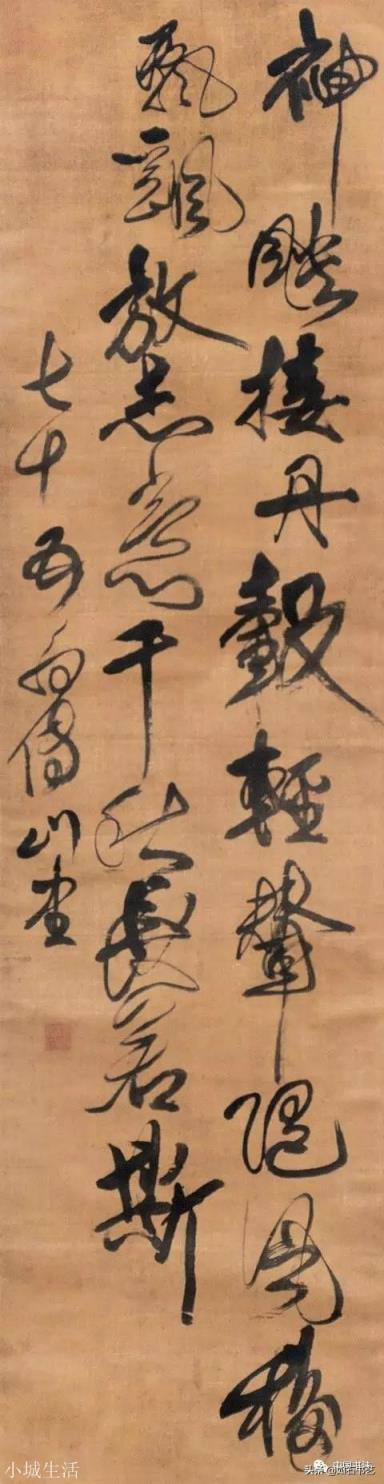 神飈接丹轂輕輦隨風移
飄飖放志意千秋長若斯
七十五翁傅山書
小城生活